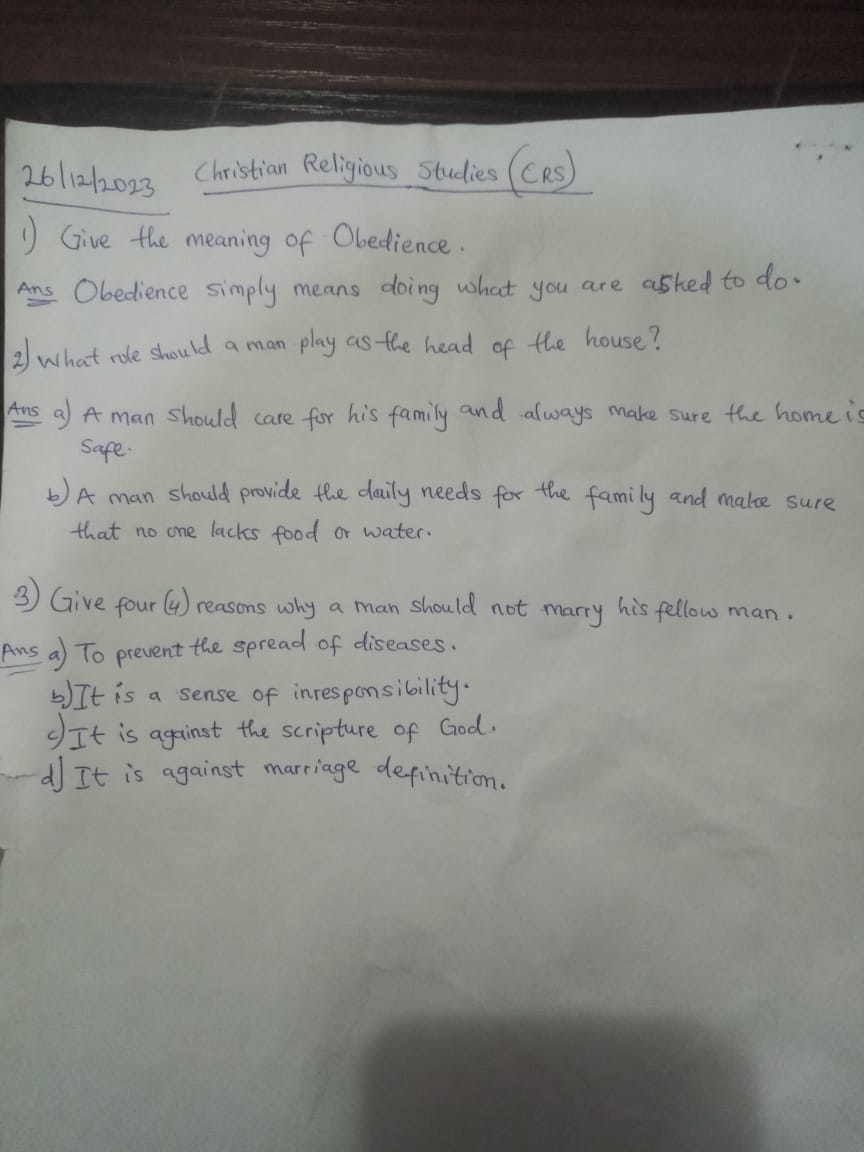 26/12/2023 Christian Religious Studies (CRS)
1) Give the meaning of Obedience.
Ans Obedience simply means doing what you are asked to do.
2) What role should a man play as the head of the house?
Ans a) A man should care for his family and always make sure the home is
safe.
b) A man should provide the daily needs for the family and make sure
that no one lacks food or water.
3) Give four (4) reasons why a man should not marry his fellow man.
Ans a) To prevent the spread of diseases.
b) It is a sense of inresponsibility.
c) It is against the scripture of God.
d) It is against marriage definition.